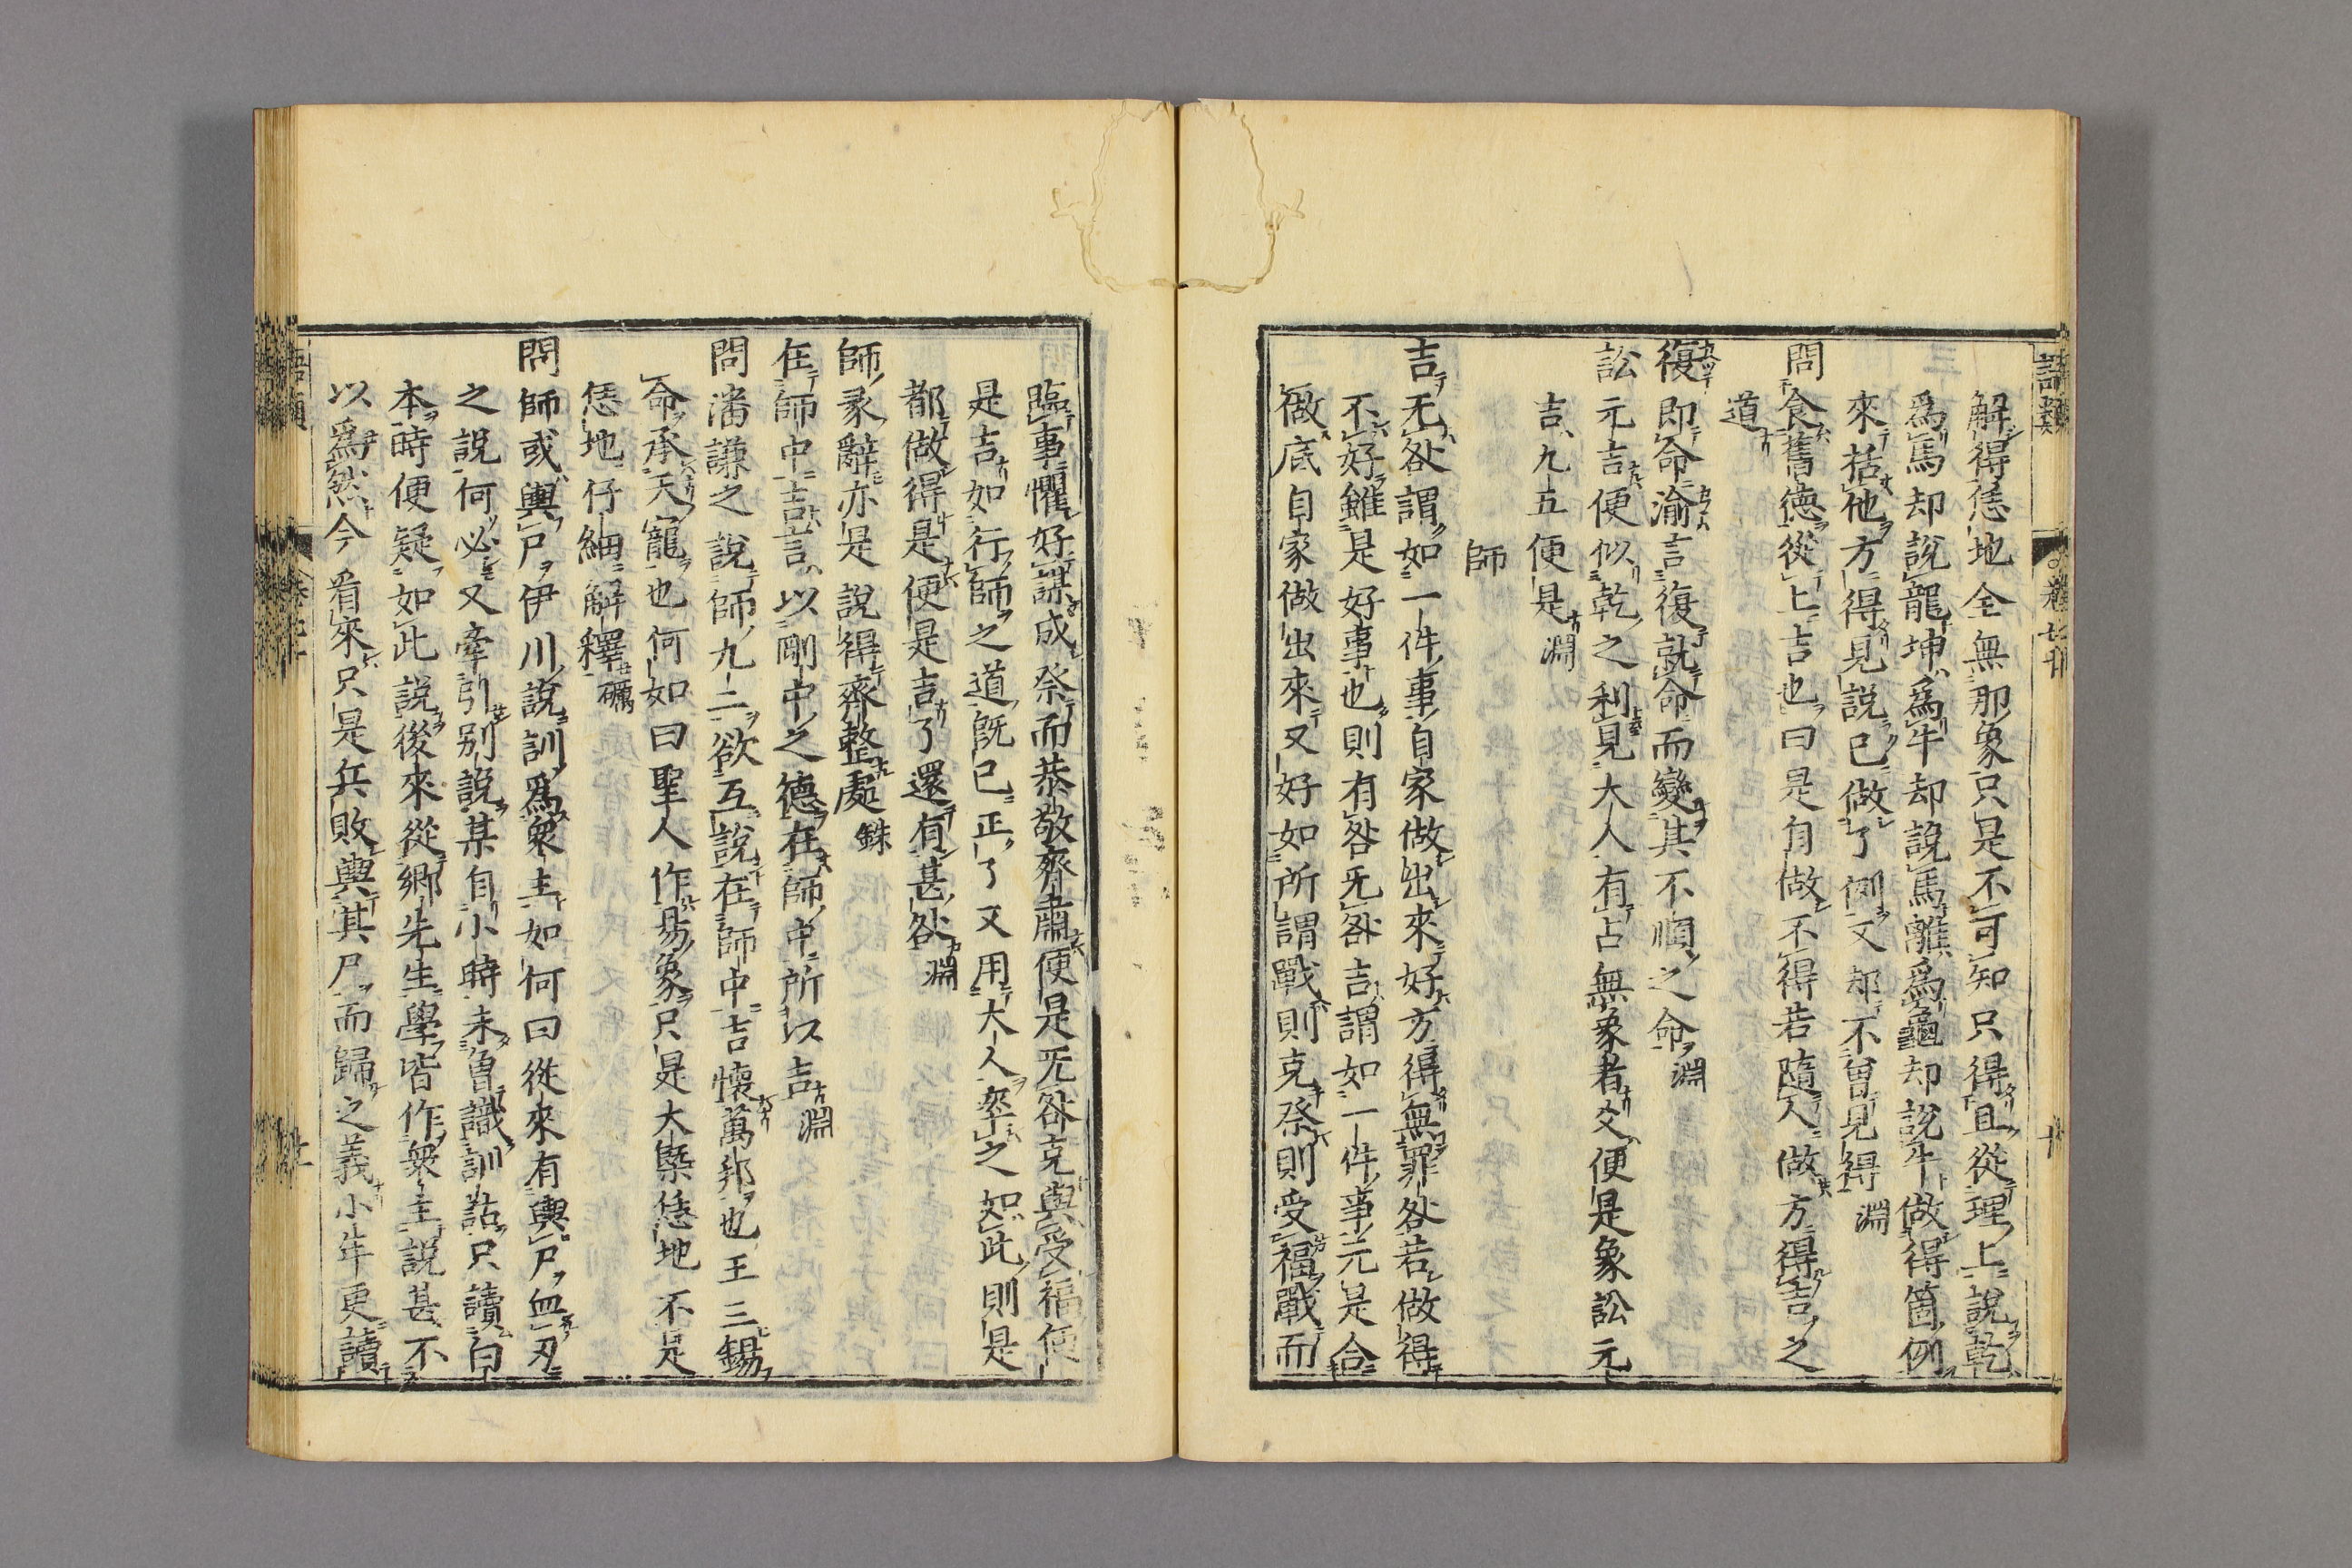 語類
卷七十
十
解得恁地全無那象只是不可知只得且從理上說乾
爲馬却說龍坤爲牛却說馬離爲龜却說牛做得箇例
來括他方得見說已做了例又却不曾見得淵
問食舊德從上吉也曰是自做不得若隨人做方得吉之
道
復即命渝言復就命而變其不順之命淵
訟元吉便似乾之利見大人有占無象者爻便是象訟元
吉九五便是淵
師
吉无咎謂如一件事自家做出來好方得無罪咎若做得
不好雖是好事也則有咎无咎吉謂如一件事元是合
做底自家做出來又好如所謂戰則克祭則受福戰而
臨事懼好謀成祭而恭敬齊肅便是无咎克與受福便
是吉如行師之道既已正了又用大人率之如此則是
都做得是便是吉了還有甚咎淵
師彖辭亦是說得齊整處銖
在師中吉言以剛中之德在師中所以吉淵
問潘謙之說師九二欲互說在師中吉懷萬邦也王三錫
命承天寵也何如曰聖人作易象只是大槩恁地不是
恁地仔細解釋礪
問師或輿尸伊川說訓爲衆主如何曰從來有輿尸血刃
之說何必又牽引別說某自小時未曾識訓詁只讀白
本時便疑如此說後來從鄉先生學皆作衆主說甚不
以爲然今看來只是兵敗輿其尸而歸之義小年更讀
語類